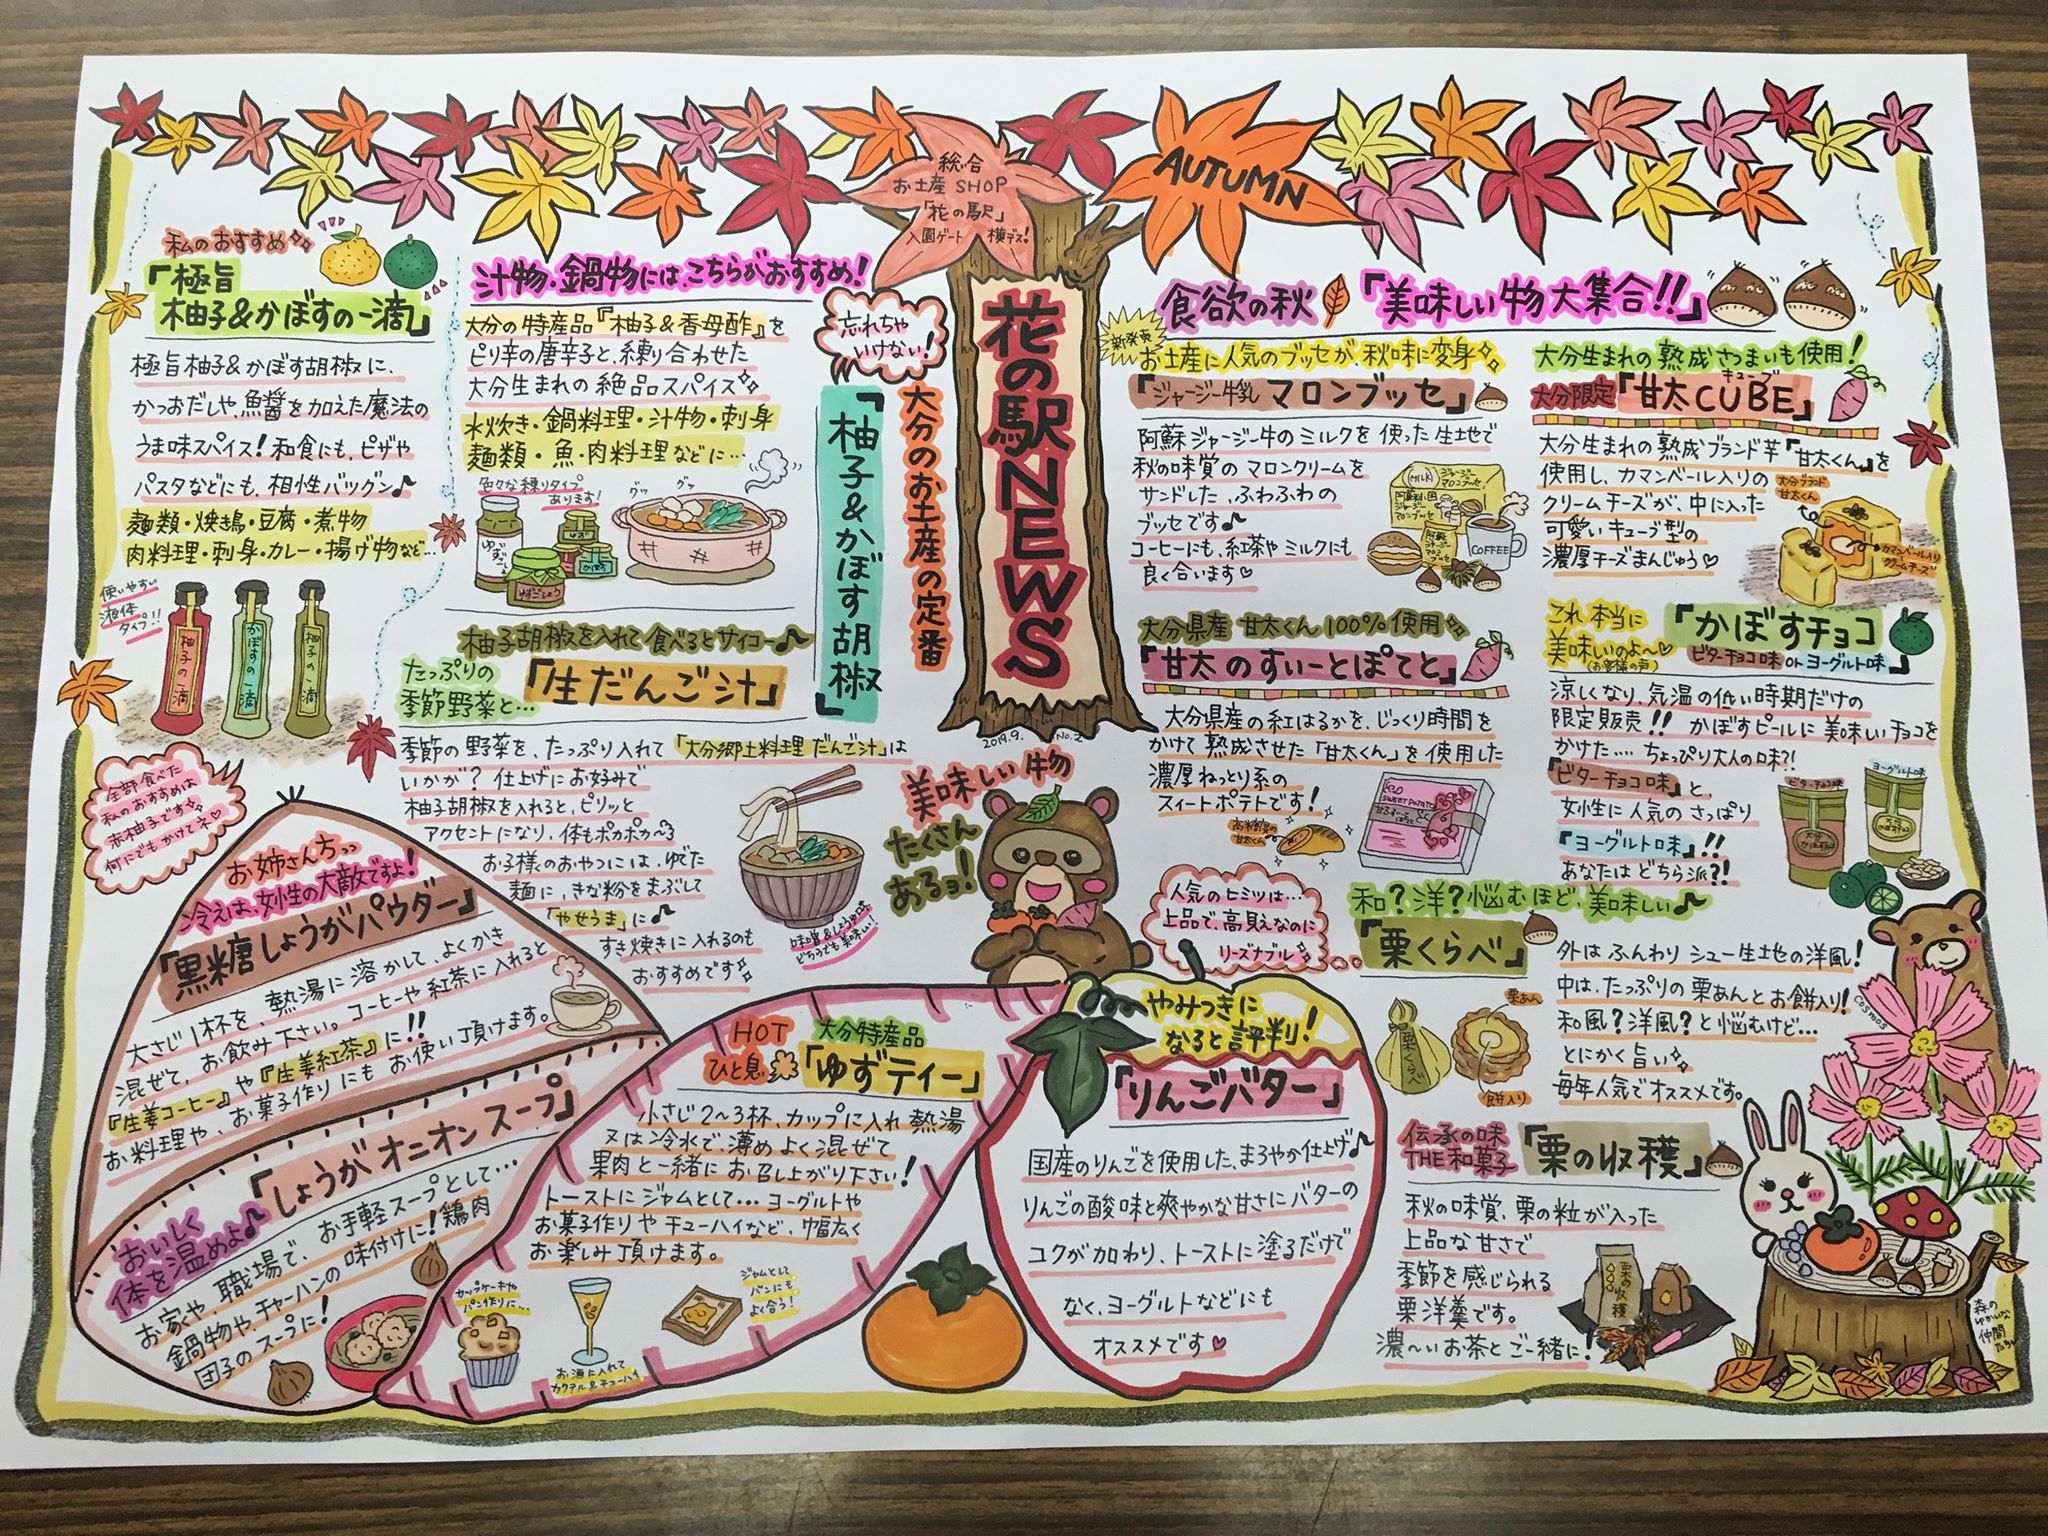 総合
お土産SHOP
「花の駅」
入園ゲート 横デス!
AUTUMN
花の駅NEWS
2019.9. No.2
私のおすすめ
『極旨
柚子&かぼすの一滴』
極旨柚子&かぼす胡椒に、
かつおだしや、魚醤を加えた魔法の
うま味スパイス!和食にも、ピザや
パスタなどにも、相性バツグン♪
麺類・焼き鳥・豆腐・煮物
肉料理・刺身・カレー・揚げ物など…
使いやすい
液体
タイプ!!
柚子の一滴
かぼすの一滴
柚子の一滴
全部食べた
私のおすすめは
赤柚子です
何にでもかけてネ♡
汁物・鍋物には、こちらがおすすめ!
大分の特産品『柚子&香母酢』を
ピリ辛の唐辛子と、練り合わせた
大分生まれの絶品スパイス
水炊き・鍋料理・汁物・刺身
麺類・魚・肉料理などに…
色々な練りタイプ
あります!
グッ グッ
ゆずごしょう
忘れちゃ
いけない!
大分のお土産の定番
『柚子&かぼす胡椒』
柚子胡椒を入れて食べるとサイコー♪
たっぷりの
季節野菜と…
『生だんご汁』
季節の野菜を、たっぷり入れて「大分郷土料理だんご汁」は
いかが?仕上げにお好みで
柚子胡椒を入れると、ピリッと
アクセントになり、体もポカポカ〜
お子様のおやつには、ゆでた
麺に、きな粉をまぶして
「やせうま」に♪
すき焼きに入れるのも
おすすめです
味噌&しょうゆ味
どちらでも美味しい!
美味しい物
たくさん
あるョ!
お姉さん方っっ
冷えは、女性の大敵ですよ!
『黒糖しょうがパウダー』
大さじ1杯を、熱湯に溶かして、よくかき
混ぜて、お飲み下さい。コーヒーや紅茶に入れると
『生姜コーヒー』や『生姜紅茶』に!!
お料理や、お菓子作りにもお使い頂けます。
おいしく
体を温めよ♪
『しょうがオニオンスープ』
お家や、職場で、お手軽スープとして…
鍋物や、チャーハンの味付けに!鶏肉
団子のスープに!
HOT
ひと息
大分特産品
『ゆずティー』
小さじ2〜3杯、カップに入れ熱湯
又は冷水で、薄めよく混ぜて
果肉と一緒にお召し上がり下さい!
トーストにジャムとして…ヨーグルトや
お菓子作りやチューハイなど、幅広く
お楽しみ頂けます。
カップケーキや
パン作りに…
お酒に入れて
カクテル&チューハイ
ジャムとして
パンにも
よく合う!
やみつきに
なると評判!
『りんごバター』
国産のりんごを使用した、まろやか仕上げ♪
りんごの酸味と爽やかな甘さにバターの
コクが加わり、トーストに塗るだけで
なく、ヨーグルトなどにも
オススメです♡
食欲の秋
『美味しい物大集合!!』
新発売
お土産に人気のブッセが、秋味に変身
『ジャージー牛乳 マロンブッセ』
阿蘇ジャージー牛のミルクを使った生地で
秋の味覚のマロンクリームを
サンドした、ふわふわの
ブッセです♪
コーヒーにも、紅茶やミルクにも
良く合います♡
MILK
COFFEE
大分生まれの熟成さつまいも使用!
大分限定
『甘太CUBE』
キューブ
大分生まれの熟成ブランド芋『甘太くん』を
使用し、カマンベール入りの
クリームチーズが、中に入った
可愛いキューブ型の
濃厚チーズまんじゅう♡
大分ブランド
甘太くん
カマンベール入り
クリームチーズ
大分県産 甘太くん100%使用
『甘太のすいーとぽてと』
大分県産の紅はるかを、じっくり時間を
かけて熟成させた「甘太くん」を使用した
濃厚ねっとり系の
スイートポテトです!
高糖度の
甘太くん
SWEET POTATO
これ本当に
美味しいのよ〜♡
(お客様の声)
『かぼすチョコ
ビターチョコ味 or ヨーグルト味』
涼しくなり、気温の低い時期だけの
限定販売!!かぼすピールに美味しいチョコを
かけた…. ちょっぴり大人の味?!
『ビターチョコ味』と、
女性に人気のさっぱり
『ヨーグルト味』!!
あなたはどちら派?!
ビターチョコ味
ヨーグルト味
人気のヒミツは…
上品で、高見えなのに
リーズナブル
和?洋?悩むほど、美味しい♪
『栗くらべ』
外はふんわりシュー生地の洋風!
中は、たっぷりの栗あんとお餅入り!
和風?洋風?と悩むけど…
とにかく旨い
毎年人気でオススメです。
栗くらべ
栗あん
餅入り
cosmos
伝承の味
THE和菓子
『栗の収穫』
秋の味覚、栗の粒が入った
上品な甘さで
季節を感じられる
栗洋羹です。
濃〜いお茶とご一緒に!
栗の収穫
森の
ゆかいな
仲間
たち